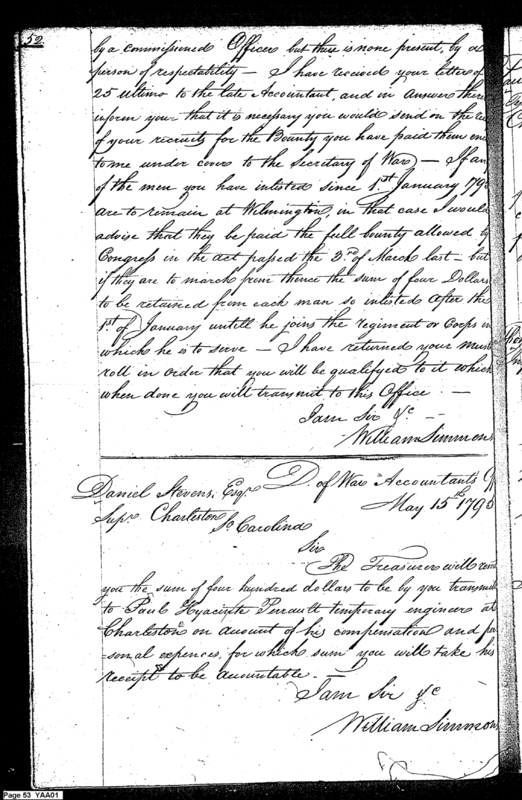 52
by a commissioned Officer but if there is none present, by a
person of respectability — I have received your letter of
25 ultimo to the late Accountant, and in answer there
inform you that it is necessary you would send on the
of your recruits for the Bounty you have paid them
to me under cover to the Secretary of War — If an
of the men you have inlisted since 1st January 179
are to remain at Wilmington, in that case I would
advise that they be paid the full bounty allowed by
Congress in the act passed the 3rd of March last — but
if they are to march from thence the sum of four Dollars
to be retained from each man so inlisted after the
1st of January untill he joins the regiment or Corps in
which he is to serve — I have returned your muster
roll in order that you will be qualifyed to it which
when done you will transmit to this Office —
I am Sir &c —
William Simmons
D. of War Accountants
Daniel Stevens, Esqr.
May 15th 1795
Supr. Charleston So Carolina
Sir
The Treasurer will remit
you the sum of four hundred dollars to be by you transmit
to Paul Hyacinte Perrault temporary engineer at
Charleston on account of his compensation and per
=sonal expences, for which sum you will take his
receipt to be accountable. —
I am Sir &c
William Simmons
Page 53 YAA01